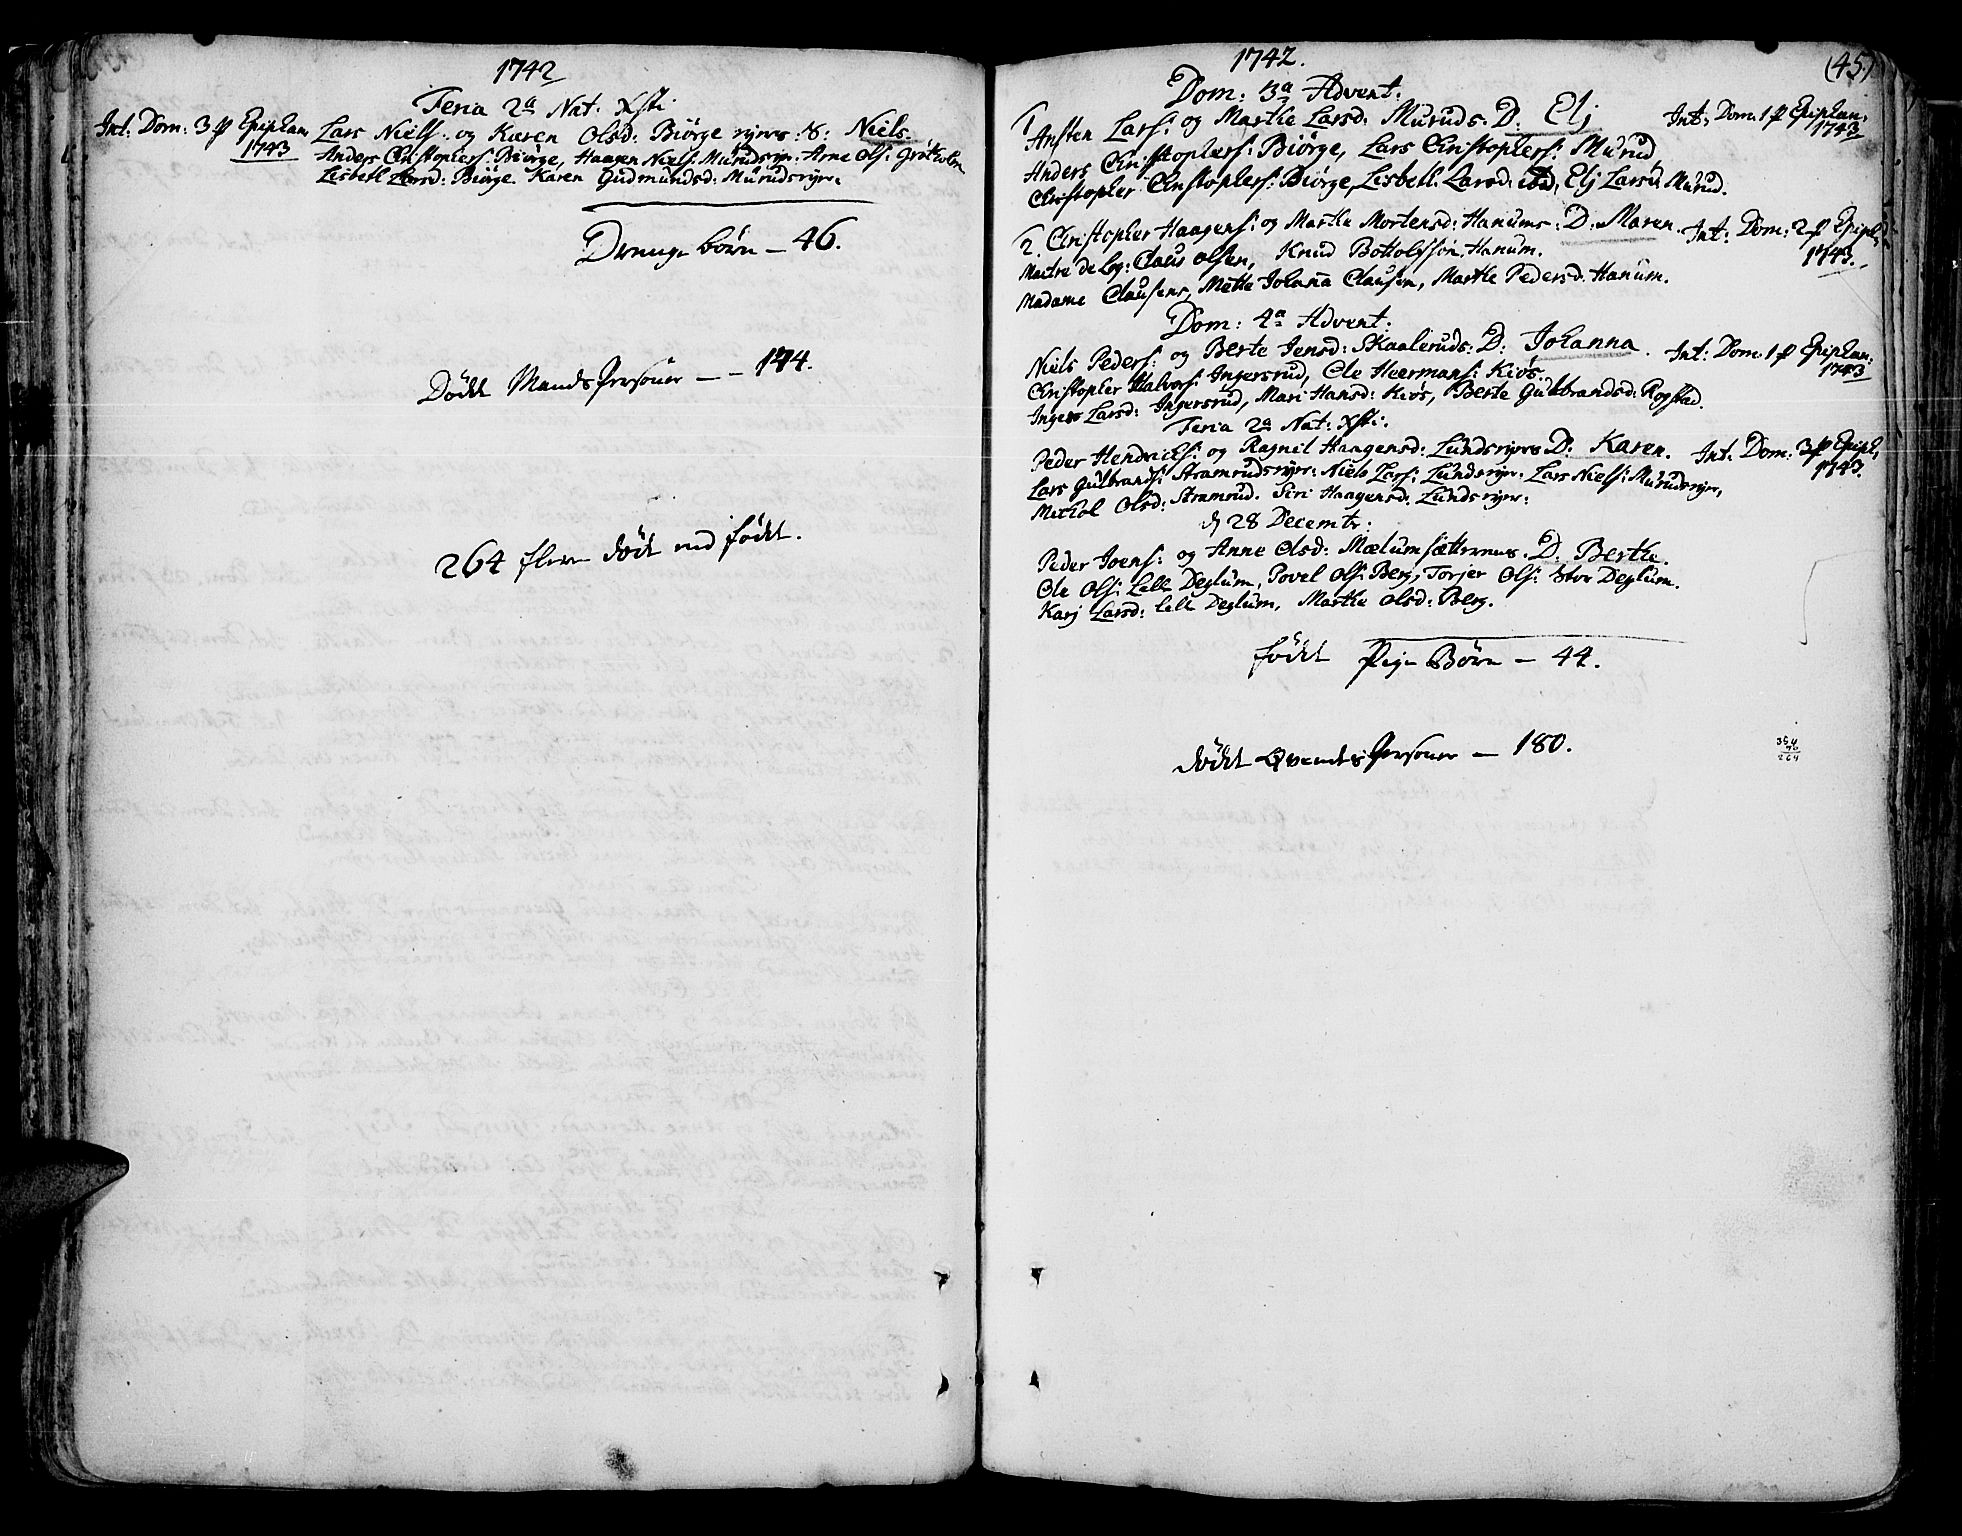 1742
Feria 2a Nat: Xsti
Int: Dom: 3 p Epiphan 1743
Lars Niels: og Karen Olsd: Biørge ejres S: Niels.
Anders Christophers: Biørge, Haagen Niels: Murudsejer. Arne Ols: Grøtholm
Lisbeth Larsd: Biørge. Karen Gudmundsd: Murudsejer.
Drenge børn — 46.
Døde Mands Personer — 174.
264 flere død end fødde.
1742.
(45)
Dom: 3a Advent:
1 Ansten Lars: og Marthe Larsd: Muruds. D. Elj
Int: Dom: 1 p Epiphan: 1743
Anders Christophers: Biørge, Lars Christophers: Murud
Christopher Christophers: Biørge, Lisbeth Larsd: ibd, Elj Larsd: Murud.
2. Christopher Haagens: og Marthe Mortensd: Hanums: D: Maren.
Int: Dom: 2 p Epiph: 1743.
Maitre de Log: Claus Olsen, Knud Botholfsøn, Hanum.
Madame Clausens, Mette Johanna Clausen, Marthe Pedersd. Hanum.
Dom: 4a Advent:
Niels Peders: og Berte Jensd: Skaaleruds: D: Johanna.
Int: Dom: 1 p Epiphan: 1743
Christopher Halvors: Ingersrud, Ole Heermans: Kiøs.
Ingers Larsd: Ingersrud, Mari Hansd: Kiøs, Berte Guldbrandsd: Rogstad.
Feria 2a Nat: Xsti.
Peder Hendrichs: og Ragnil Haagensd: Lundsejers D: Karen.
Int: Dom: 3 p Epiph: 1743.
Lars Gulbrands: Stramrudsejer: Niels Lars: Lundsejer. Lars Niels: Murudsejer,
Olsd: Stramrud. Siri Haagensd: Lundsejer:
d 28 Decembr:
Peder Joens: og Anne Olsd: Mælumsætternes. D. Berthe.
Ole Ols: Lelle Deglum, Povel Ols: Berg, Torjer Ols: Stor Deglum.
Karj Larsd: Lelle Deglum, Marthe Olsd: Berg.
fødde Pige Børn — 44.
døde Qvindes Personer — 180.
354
90
264